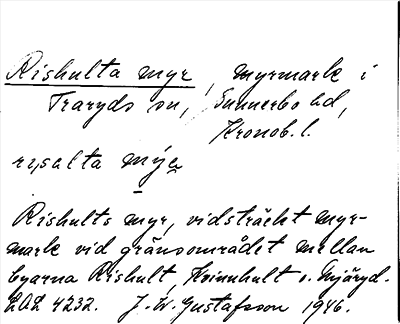 Rishulta myr, myrmark i
Traryds sn, Sunnerbo hd,
Kronob. l.
rysalta mýr
Rishults myr, vidsträckt myr-
mark vid gränsområdet mellan
byarna Rishult, Kvinnhult o. Mjäryd.
LAL 4232. J. W. Gustafsson 1946.